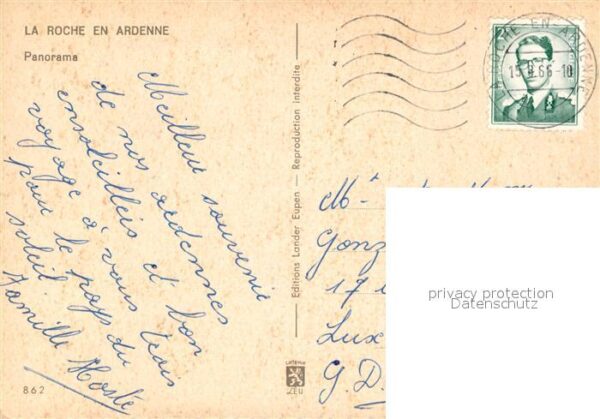 LA ROCHE EN ARDENNE
Panorama
Meilleur souvenir
de nos ardennes
ensoleillées et bon
voyage à vous trois
pour le pays du
soleil
Famille
862
Editions Lander Eupen — Reproduction interdite
LA ROCHE EN ARDENNE
15. 66-10
Gonz
171
Lux
G.D.
privacy protection
Datenschutz